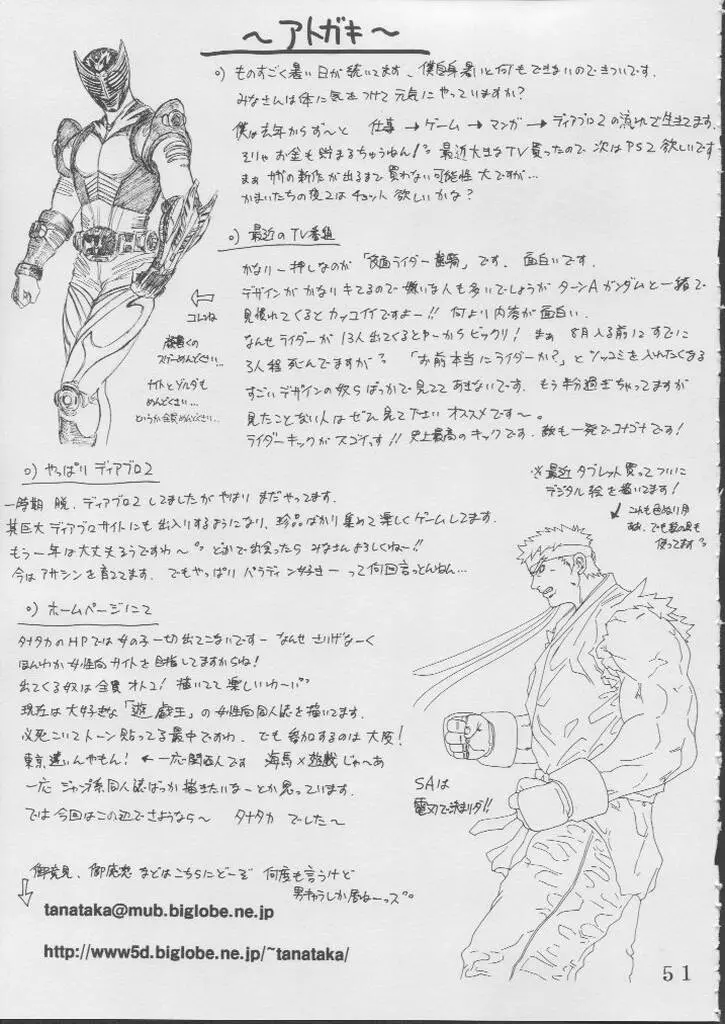 ～アトガキ～
○)ものすごく暑い日が続いてます、僕自身暑いと何もできないのできついです.
みなさんは体に気をつけて元気にやっていますか?
僕は去年からず～と 仕事→ゲーム→マンガ→ディアブロ2の流れで生きてます.
そりゃお金も貯まるちゅうねん!最近大きなTV買ったので次はPS2欲しいです
まぁ サガの新作が出るまで買わない可能性大ですが…
かまいたちの夜2はチョット欲しいかな?
○)最近のTV番組
かなり一押しなのが「仮面ライダー龍騎」です. 面白いです.
デザインがかなりキてるので嫌いな人も多いでしょうがターンAガンダムと一緒で
見慣れてくるとカッコイイですよー!!何より内容が面白い.
なんせライダーが13人出てくるとゆーからビックリ!まぁ 8月入る前にすでに
3人程死んでますが 「お前本当にライダーか?」とツッコミを入れたくなる
すごいデザインの奴らばっかで見ててあきないです. もう半分過ぎちゃってますが
見たことない人はぜひ見て下さい オススメです～.
ライダーキックがスゴイっす!!史上最高のキックです. 敵も一発でコナゴナです!
⇦
コレね
龍騎の
スゲーめんどくさい…
ナイトとゾルダも
めんどくさい…
というか全員めんどくさい…
○)やっぱりディアブロ2
一時期 脱、ディアブロ2してましたがやはりまだやってます.
某巨大ディアブロサイトにも出入りするようになり、珍品ばかり集めて楽しくゲームしてます.
もう一年は大丈夫ろうですわ～ どこかで出会ったらみなさんよろしくねー!!
今はアサシンを育ててます. でもやっぱりパラディン好きーって何回言っとんねん…
※最近タブレット買ってついに
デジタル絵を描いてます!
○)ホームページにて
タナタカのHPでは女の子一切出てこないですー なんせ さりげなーく
ほんわか女性向サイトを目指してますからね!
出てくる奴は全員オトコ!描いてて楽しいわ～
現在は大好きな「遊戯王」の女性向同人誌を描いてます.
必死こいてトーン貼ってる最中ですわ. でも参加するのは大阪!
東京遠いんやもん!←一応関西人です 海馬×遊戯じゃ～あ
一応ジャンプ系同人誌ばっか描きたいなーとか思っています.
では今回はこの辺でさようなら～ タナタカ でした～
SAは
電刃で決まりダ!!
御意見、御感想などはこちらにどーぞ 何度も言うけど
男キャラしか居ねーっス
tanataka@mub.biglobe.ne.jp
http://www5d.biglobe.ne.jp/~tanataka/
51